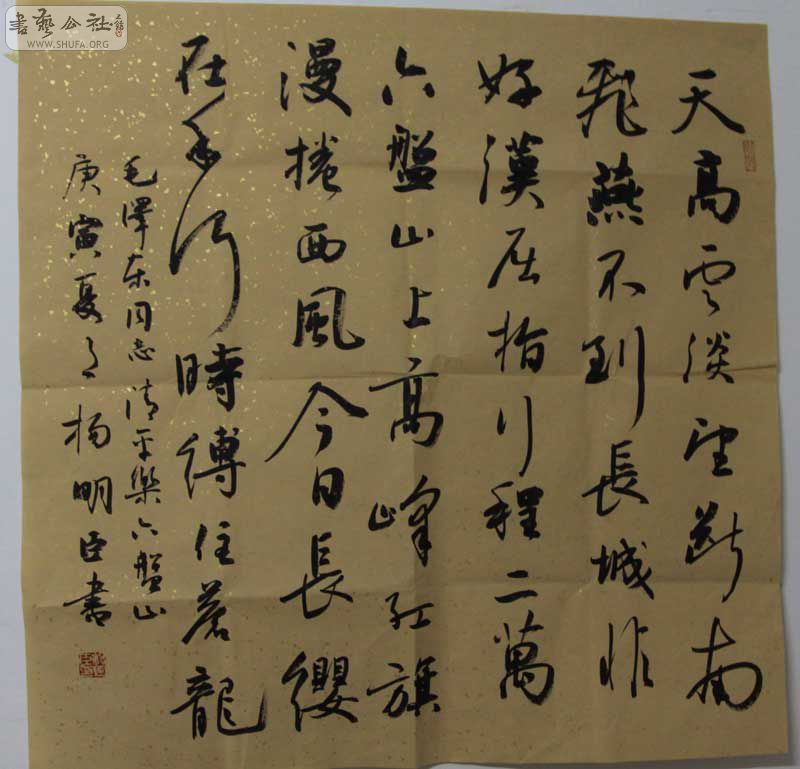 天高雲淡望斷南
飛燕不到長城非
好漢屈指行程二萬
六盤山上高峰紅旗
漫捲西風今日長纓
在手何時縛住蒼龍
毛澤東同志清平樂六盤山
庚寅夏月杨明臣書
書藝公社
WWW.SHUFA.ORG